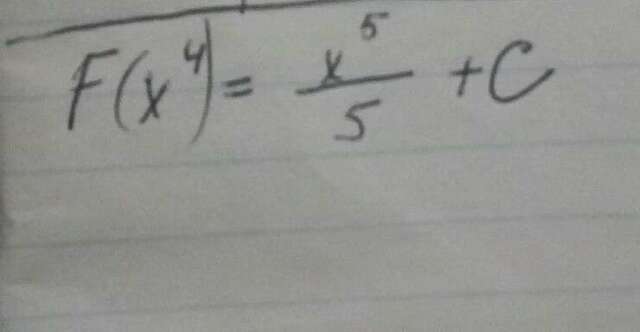 F(x⁴) = x⁵/5 + C